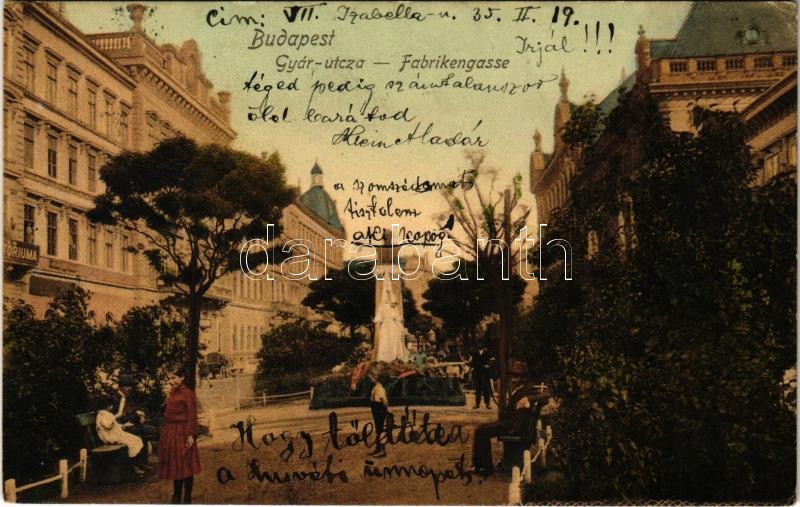 Cim: VII. Izabella-u. 35. II. 19.
Budapest
Irjál!!!
Gyár-utcza — Fabrikengasse
téged pedig számtalanszor
ölel barátod
Klein Aladár
a szomszédomat
tisztelem
aki kopog
darabanth
TORIUMA
Hogy töltötted
a husvéti ünnepet?